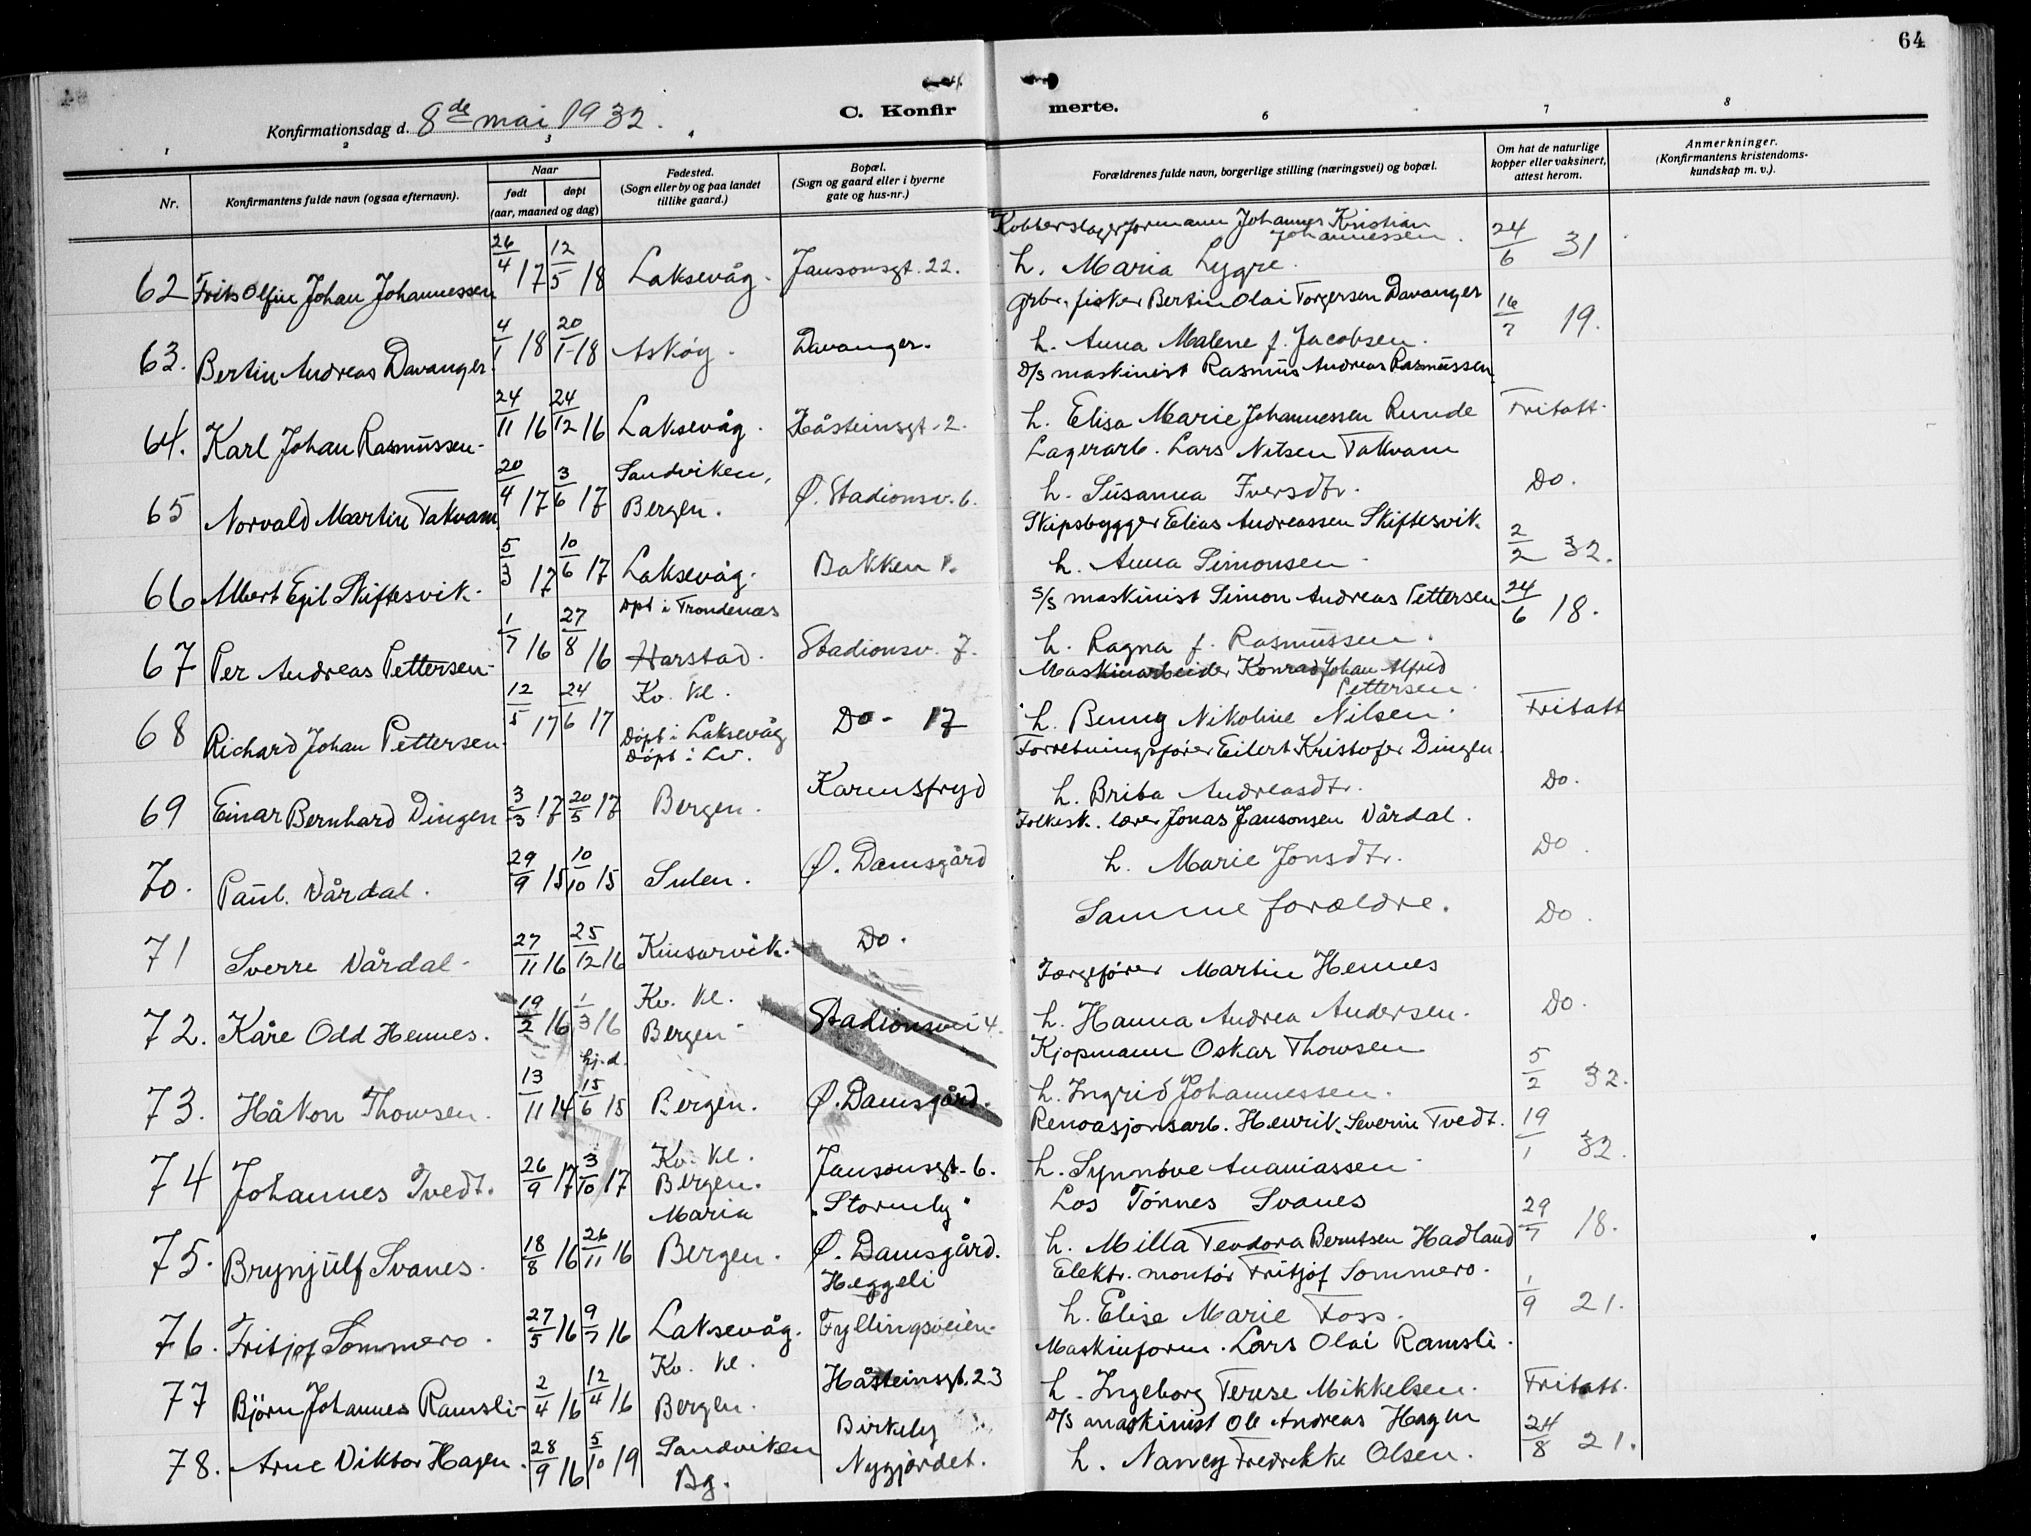 64
Konfirmationsdag d. 8de mai 1932.
C. Konfirmerte.
1 2 3 4 6 7 8
Nr.
Konfirmantens fulde navn (ogsaa efternavn).
Naar
født døpt
(aar, maaned og dag)
Fødested.
(Sogn eller by og paa landet
tillike gaard.)
Bopæl.
(Sogn og gaard eller i byerne
gate og hus-nr.)
Forældrenes fulde navn, borgerlige stilling (næringsvei) og bopæl.
Om hat de naturlige
kopper eller vaksinert,
attest herom.
Anmerkninger.
(Konfirmantens kristendoms-
kundskap m. v.).
Kobberslagerformann Johannes Kristian
Johannessen.
62 Frits Olfin Johan Johannessen 26/4 17 12/5 18 Laksevåg. Jansonsgt. 22. h. Maria Lygre. 24/6 31
Grbr. fisker Bertin Olai Torgersen Davanger
63. Bertin Andreas Davanger. 4/1 18 20/1-18 Askøy. Davanger. h. Anna Malene f. Jacobsen. 16/7 19.
D/S maskinist Rasmus Andreas Rasmussen.
64. Karl Johan Rasmussen- 24/11 16 24/12 16 Laksevåg. Håsteinsgt. 2. h. Elisa Marie Johannessen Runde Fritatt.
Lagerarb. Lars Nilsen Takvam
65 Norvald Martin Takvam 20/4 17 3/6 17 Sandviken, Bergen. Ø. Stadionsv. 6. h. Susanna Iversdtr. Do.
Skipsbygger Elias Andreassen Skiftesvik.
66 Albert Egil Skiftesvik. 5/3 17 10/6 17 Laksevåg. Bakken 1. h. Anna Simonsen 2/2 32.
S/S maskinist Simon Andreas Pettersen
67 Per Andreas Pettersen- 1/7 16 27/8 16 Dpt i Trondenes Harstad. Stadionsv. 7. h. Ragna f. Rasmussen. 24/6 18.
Maskinarbeider Konrad Johan Alfred
Pettersen.
68 Richard Johan Pettersen. 12/5 17 24/6 17 Kv. kl. Døpt i Laksevåg Do- 17 h. Benny Nikoline Nilsen. Fritatt
Forretningsfører Eilert Kristofer Dingen.
69 Einar Bernhard Dingen 3/3 17 20/5 17 Døpt i Lv. Bergen. Karensfryd h. Brita Andreasdtr. Do.
Folkesk. lærer Jonas Jansonsen Vårdal.
70. Paul. Vårdal. 29/9 15 10/10 15 Sulen. Ø. Damsgård h. Marie Jonsdtr. Do.
71 Sverre Vårdal- 27/11 16 25/12 16 Kinsarvik. Do. Samme forældre. Do.
Færgefører Martin Hennes
72. Kåre Odd Hennes. 19/2 16 1/3 16 Kv. kl. Bergen Stadionsvei 4. h. Hanna Andrea Andersen. Do.
Kjøpmann Oskar Thowsen
73. Håkon Thowsen. 13/11 14 hj.d. 15/6 15 Bergen. Ø. Damsgård. h. Ingrid Johannessen. 5/2 32.
Renoasjonsarb. Henrik Severin Tvedt.
74 Johannes Tvedt. 26/9 17 3/10 17 Kv. kl. Bergen. Jansonsgt. 6. h. Synnøve Ananiassen 19/1 32.
Los Tønnes Svanes
75. Brynjulf Svanes. 18/8 16 26/11 16 Maria Bergen. "Stormly" Ø. Damsgård. h. Milla Teodora Berntsen Hadland 29/7 18.
Elektr. montør Fritjof Sommero.
76. Fritjof Sommero. 27/5 16 9/7 16 Laksevåg. Heggeli Fyllingsveien. h. Elise Marie Foss. 1/9 21.
Maskinform. Lars Olai Ramsli.
77 Bjørn Johannes Ramsli- 2/4 16 12/4 16 Kv. kl. Bergen. Håsteinsgt. 23 h. Ingeborg Terese Mikkelsen. Fritatt.
D/S maskinist Ole Andreas Hagen
78. Arne Viktor Hagen. 28/9 16 5/10 19 Sandviken Bg. Birkely Nygjørdet. h. Nancy Fredrikke Olsen. 24/8 21.